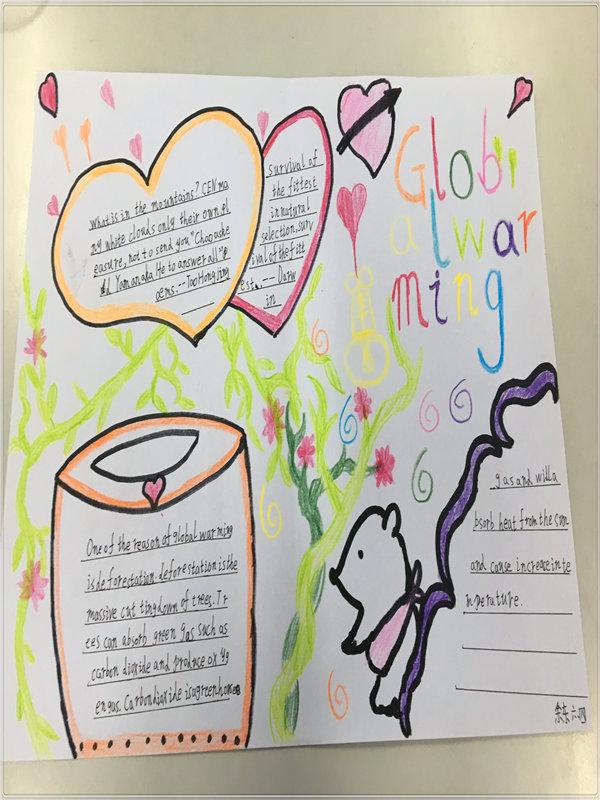 Glob
alwar
ming
what is in the mountains? CEN ma
ny white clouds only their own pl
easure, not to send you "Chaoashe
Yamanaka He to answer all" p
oems.--Tao Hong jing
survival of
the fittest
in natural
selection, surv
ival of the fitt
est. -- Darw
in
One of the reason of global warming
is deforestation. deforestation is the
massive cut ting down of trees. Tr
ees can absorb green gas such as
carbon dioxide and produce ox yg
en gas. Carbon dioxide is a greenhouse
gas and will a
bsorb heat from the sun
and cause increase in te
mperature.
六四